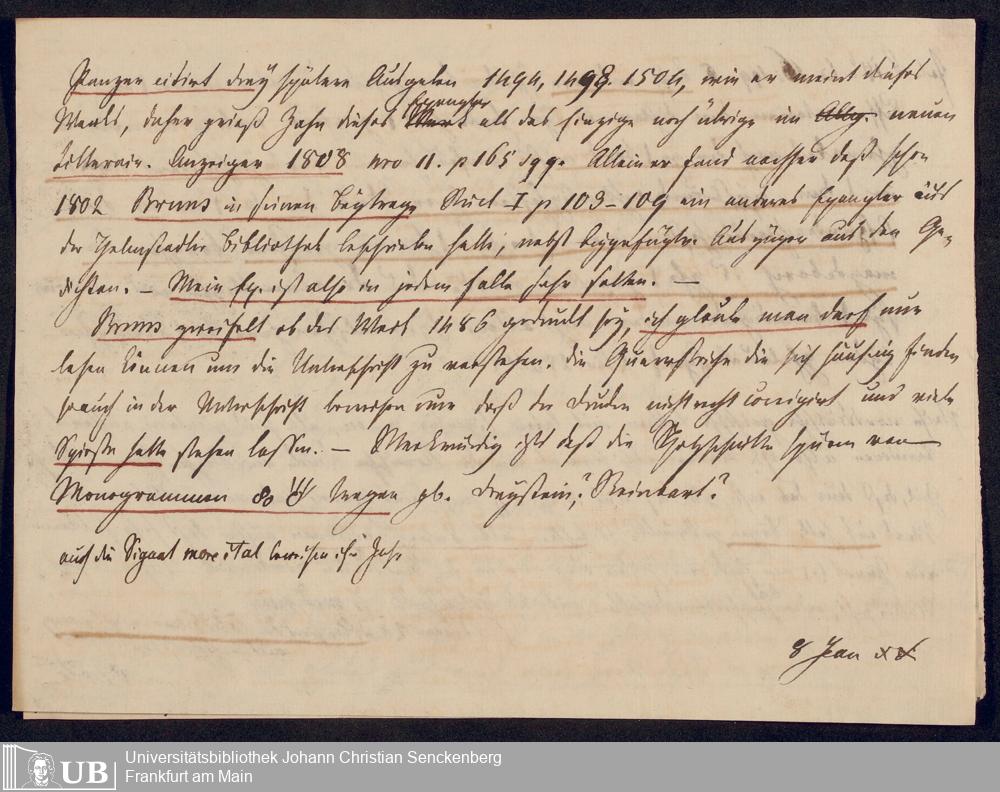 Panzer citirt drey spätere Ausgaben 1494, 1498. 1504, wie er meint dieses
Werks, daher prieß Zahn dieses Werk Exemplar als das Einzige noch übrige im Allg. neuen
Litterair. Anzeiger 1808 nro 11. p 165 sqq. Allein er fand nachher daß schon
1802 Bruns in seinen Beytrage Stück I p 103-109 ein anderes Exemplar aus
der Helmstadter Bibliothek beschrieben hatte, nebst beygefügten Auszügen aus den Ge-
dichten. – Mein Ex. ist also in jedem Falle sehr selten. –
Bruns zweifelt ob das Werk 1486 gedruckt sey, ich glaube man darf nur
lesen können um die Unterschrift zu verstehen. die Querstriche die sich häufig finden
so auch in der Unterschrift beweisen nur daß der Drucker nicht recht corrigirt und viele
Spieße hatte stehen lassen. – Merkwürdig ists daß die Holzschnitte Spuren von
Monogrammen tragen gb. Dreystein? Reinhart?
auch die Signat more ital beweisen ihr Jahr
8 Jan
Universitätsbibliothek Johann Christian Senckenberg
Frankfurt am Main
UB